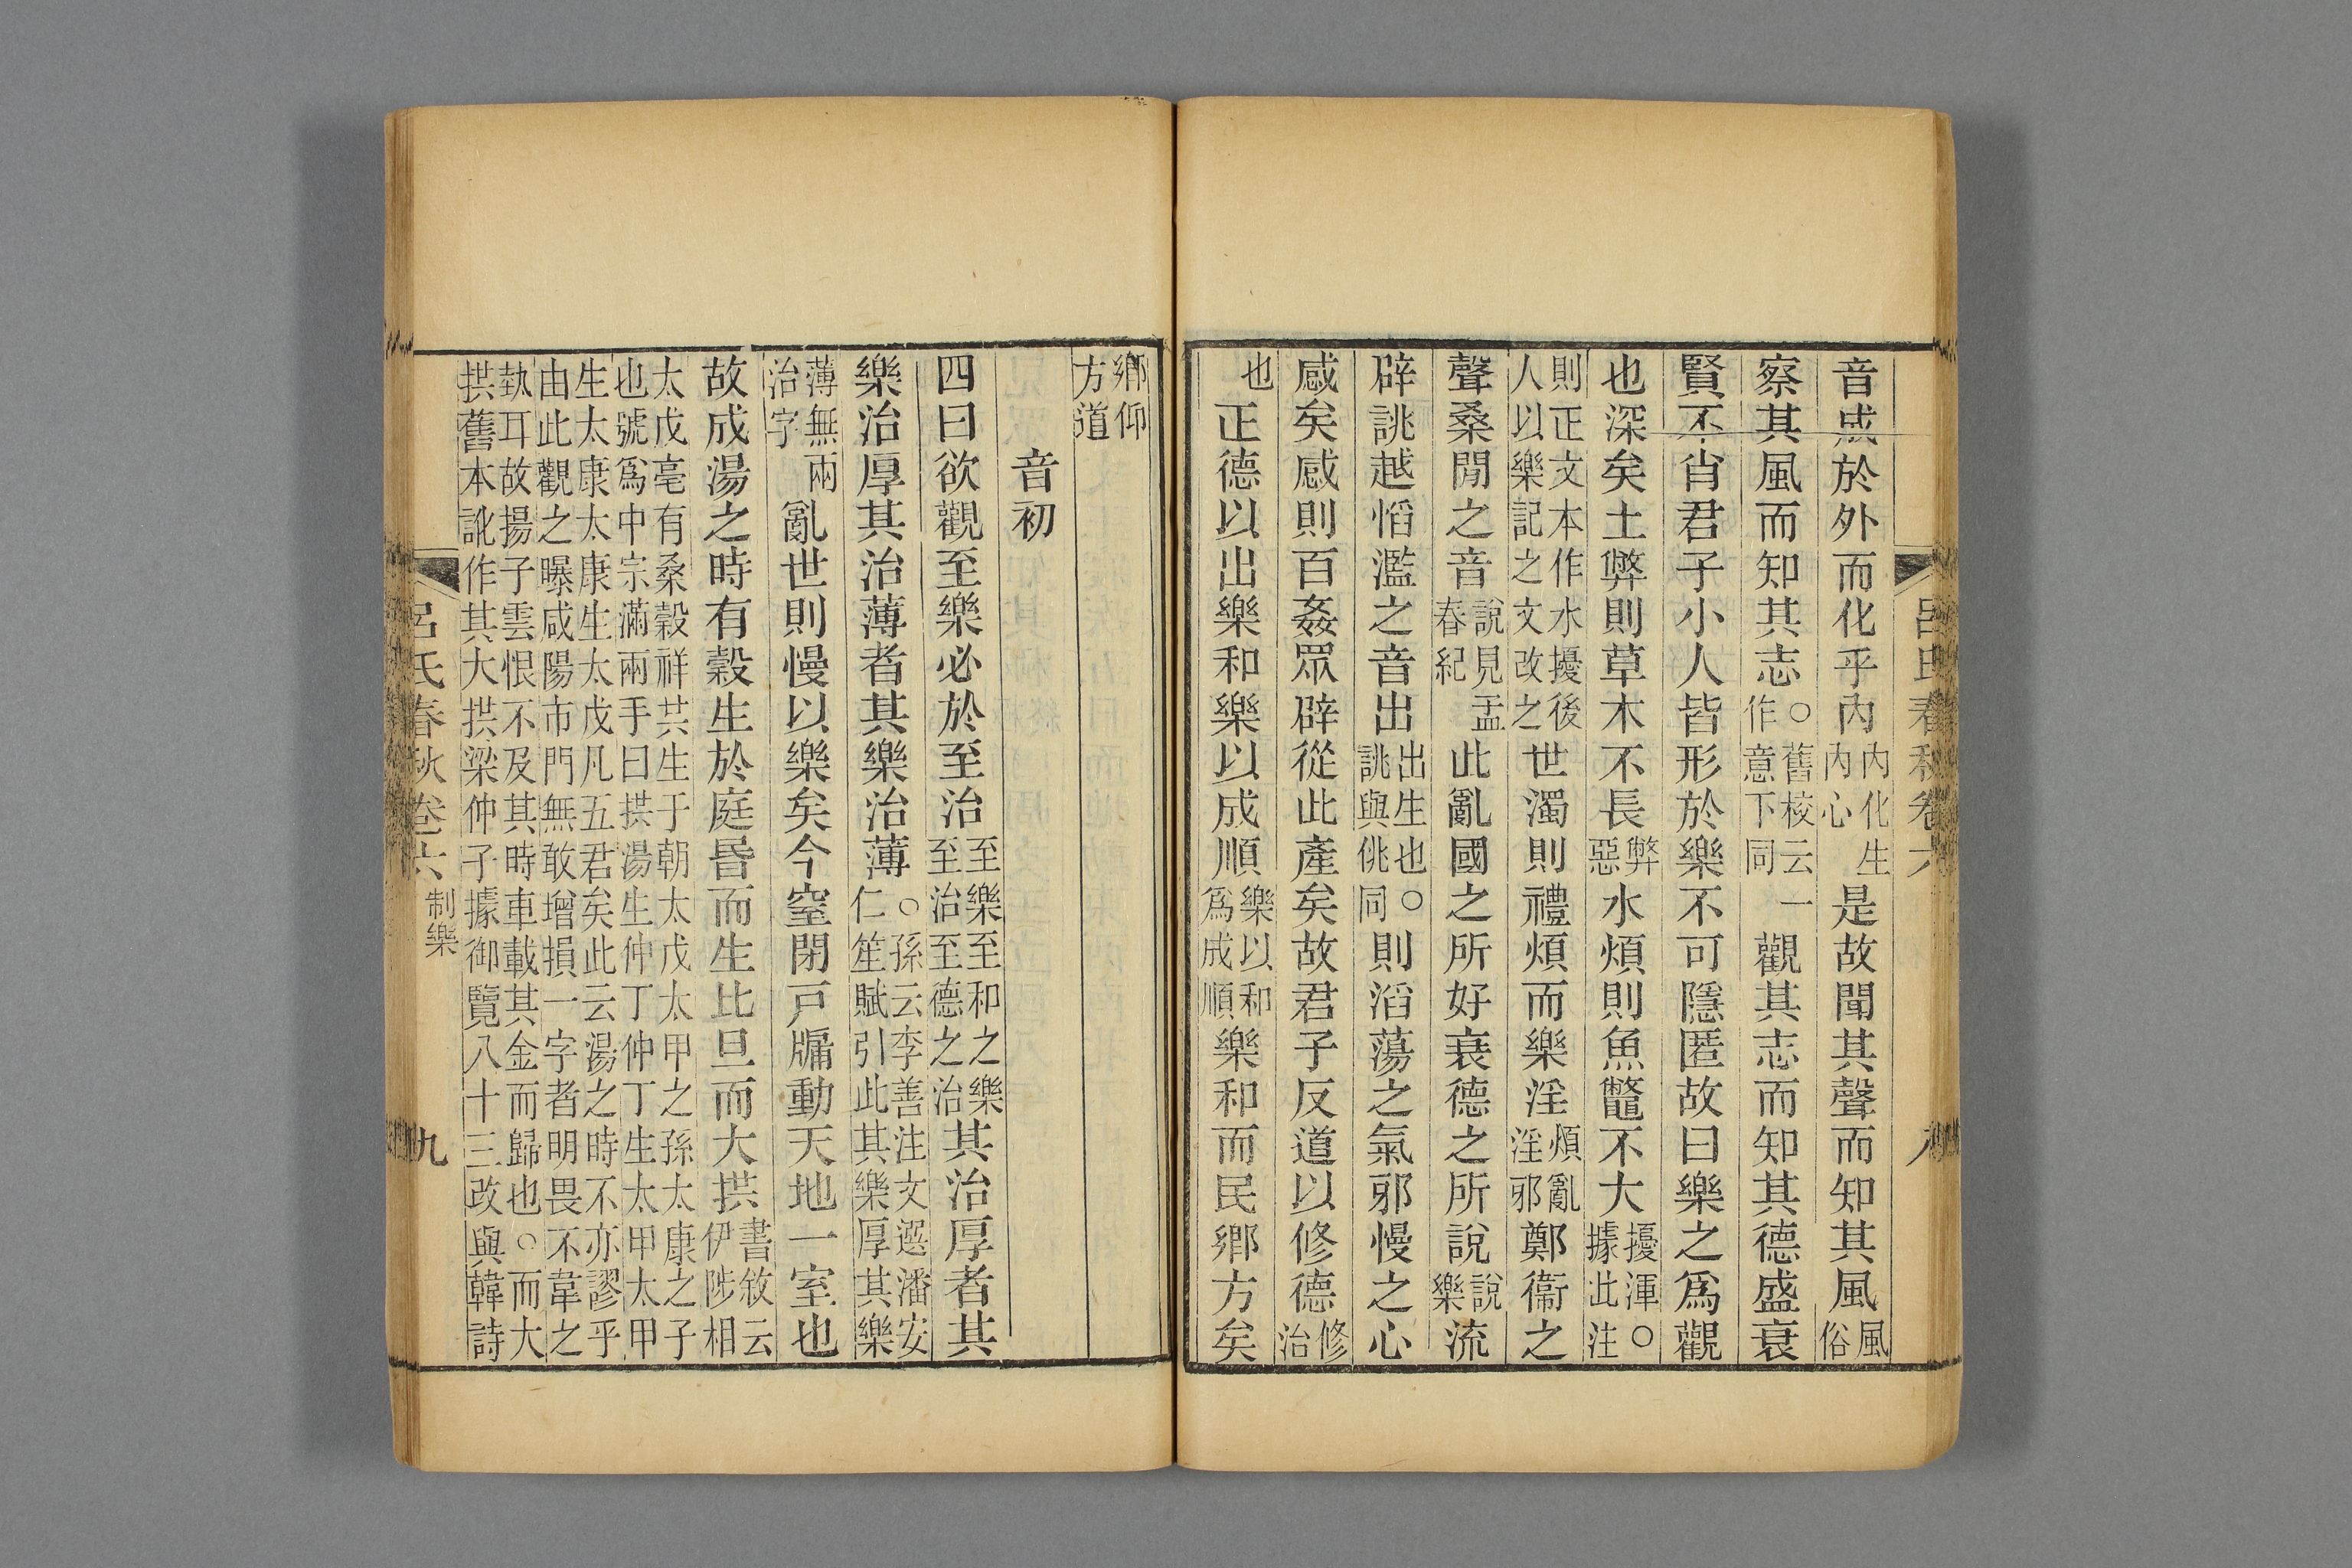 音成於外而化乎內內化生內心是故聞其聲而知其風風俗
察其風而知其志○舊校云一作意下同觀其志而知其德盛衰
賢不肖君子小人皆形於樂不可隱匿故曰樂之爲觀
也深矣土弊則草木不長弊惡水煩則魚鼈不大擾渾○據此注
則正文本作水擾後人以樂記之文改之世濁則禮煩而樂淫煩亂淫邪鄭衞之
聲桑閒之音說見孟春紀此亂國之所好衰德之所說說樂流
辟誂越慆濫之音出出生也○誂與佻同則滔蕩之氣邪慢之心
感矣感則百姦眾辟從此產矣故君子反道以修德修治
也正德以出樂和樂以成順樂以和爲成順樂和而民鄉方矣
呂氏春秋卷六 八
鄉仰方道
音初
四曰欲觀至樂必於至治至樂至和之樂至治至德之治其治厚者其
樂治厚其治薄者其樂治薄○孫云李善注文選潘安仁笙賦引此其樂厚其樂
薄無兩治字亂世則慢以樂矣今窒閉戸牖動天地一室也
故成湯之時有穀生於庭昏而生比旦而大拱書敘云伊陟相
太戊亳有桑穀祥共生于朝太戊太甲之孫太康之子也號爲中宗滿兩手曰拱湯生仲丁仲丁生太甲太甲
生太康太康生太戊凡五君矣此云湯之時不亦謬乎由此觀之曝咸陽市門無敢增損一字者明畏不韋之
埶耳故揚子雲恨不及其時車載其金而歸也○而大拱舊本訛作其大拱梁仲子據御覽八十三改與韓詩
呂氏春秋卷六 制樂 九